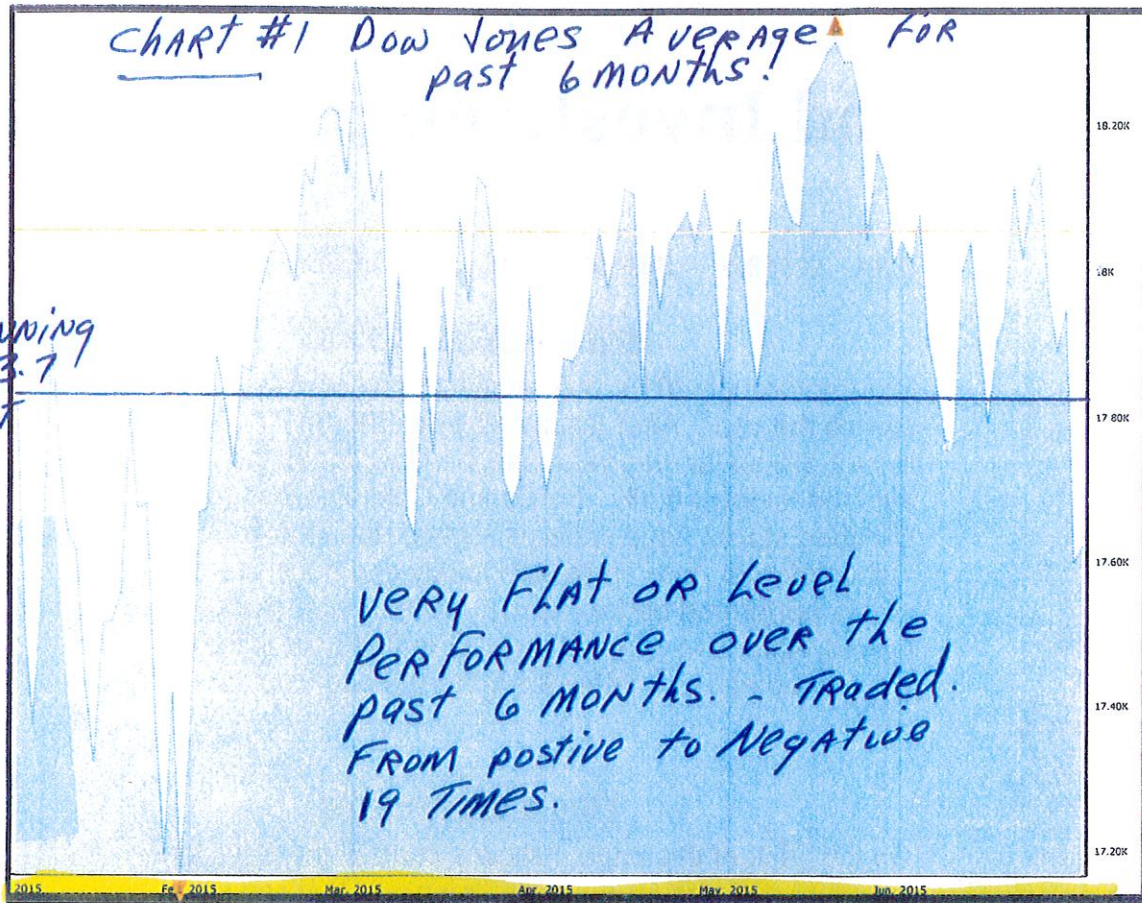 Chart #1 Dow Jones Average For
past 6 Months!
18.20K
18K
3.7
17.80K
17.60K
Very Flat or Level
Performance over the
past 6 Months. - Traded.
From postive to Negative
19 Times.
17.40K
17.20K
2015 2015 Mar, 2015 Apr, 2015 May, 2015 Jun, 2015